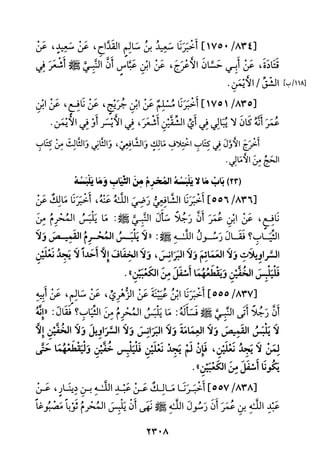 [١٧٥٠/٨٣٤] أَخْبَرَنَا سَعِيدُ بنُ سَالِمِ القَدَّاحِ، عَنْ سَعِيدٍ، عَنْ
قَتَادَةَ، عَنْ أَبِي حَسَّانَ الأَعْرَجِ، عَنْ ابْنِ عَبَّاسٍ أَنَّ النَّبِيَّ ﷺ أَشْعَرَ فِي
الشِّقِّ الأَيْمَنِ. [١١٨/ب]
[١٧٥١/٨٣٥] أَخْبَرَنَا مُسْلِمٌ عَنْ ابْنِ جُرَيْجٍ، عَنْ نَافِعٍ، عَنْ ابْنِ
عُمَرَ أَنَّهُ كَانَ لَا يُبَالِي فِي أَيِّ الشِّقَّيْنِ أَشْعَرَ، فِي الأَيْسَرِ أَوْ فِي الأَيْمَنِ.
أَخْرَجَ الأَوَّلَ فِي كِتَابِ اخْتِلَافِ مَالِكٍ وَالشَّافِعِيِّ، وَالثَّانِيَ وَالثَّالِثَ مِنْ كِتَابِ
الحَجِّ مِنَ الأَمَالِي.
(٢٣) بَابُ مَا لَا يَلْبَسُهُ المُحْرِمُ مِنَ الثِّيَابِ وَمَا يَلْبَسُهُ
[٥٥٦/٨٣٦] أَخْبَرَنَا الشَّافِعِيُّ رَضِيَ اللَّهُ عَنْهُ، أَخْبَرَنَا مَالِكٌ عَنْ
نَافِعٍ، عَنْ ابْنِ عُمَرَ أَنَّ رَجُلًا سَأَلَ النَّبِيَّ ﷺ: مَا يَلْبَسُ المُحْرِمُ مِنَ
الثِّيَابِ؟ فَقَالَ رَسُولُ اللَّهِ ﷺ: «لَا يَلْبَسُ المُحْرِمُ القَمِيصَ وَلَا
السَّرَاوِيلَاتِ وَلَا العَمَائِمَ وَلَا البَرَانِسَ، وَلَا الخِفَافَ إِلَّا أَحَداً لَا يَجِدُ نَعْلَيْنِ
فَلْيَلْبَسِ الخُفَّيْنِ وَلْيَقْطَعْهُمَا أَسْفَلَ مِنَ الكَعْبَيْنِ».
[٥٥٧/٨٣٧] أَخْبَرَنَا ابْنُ عُيَيْنَةَ عَنْ الزُّهْرِيِّ، عَنْ سَالِمٍ، عَنْ أَبِيهِ
أَنَّ رَجُلًا أَتَى النَّبِيَّ ﷺ فَسَأَلَهُ: مَا يَلْبَسُ المُحْرِمُ مِنَ الثِّيَابِ؟ فَقَالَ: «إِنَّهُ
لَا يَلْبَسُ القَمِيصَ وَلَا العِمَامَةَ وَلَا البَرَانِسَ وَلَا السَّرَاوِيلَ وَلَا الخُفَّيْنِ إِلَّا
لِمَنْ لَا يَجِدُ نَعْلَيْنِ، فَإِنْ لَمْ يَجِدْ نَعْلَيْنِ فَلْيَلْبَسْ خُفَّيْنِ وَلْيَقْطَعْهُمَا حَتَّى
يَكُونَا أَسْفَلَ مِنَ الكَعْبَيْنِ».
[٥٥٧/٨٣٨] أَخْبَرَنَا مَالِكٌ عَنْ عَبْدِ اللَّهِ بنِ دِينَارٍ، عَنْ
عَبْدِ اللَّهِ بنِ عُمَرَ أَنَّ رَسُولَ اللَّهِ ﷺ نَهَى أَنْ يَلْبَسَ المُحْرِمُ ثَوْباً مَصْبُوغاً
٢٣٠٨